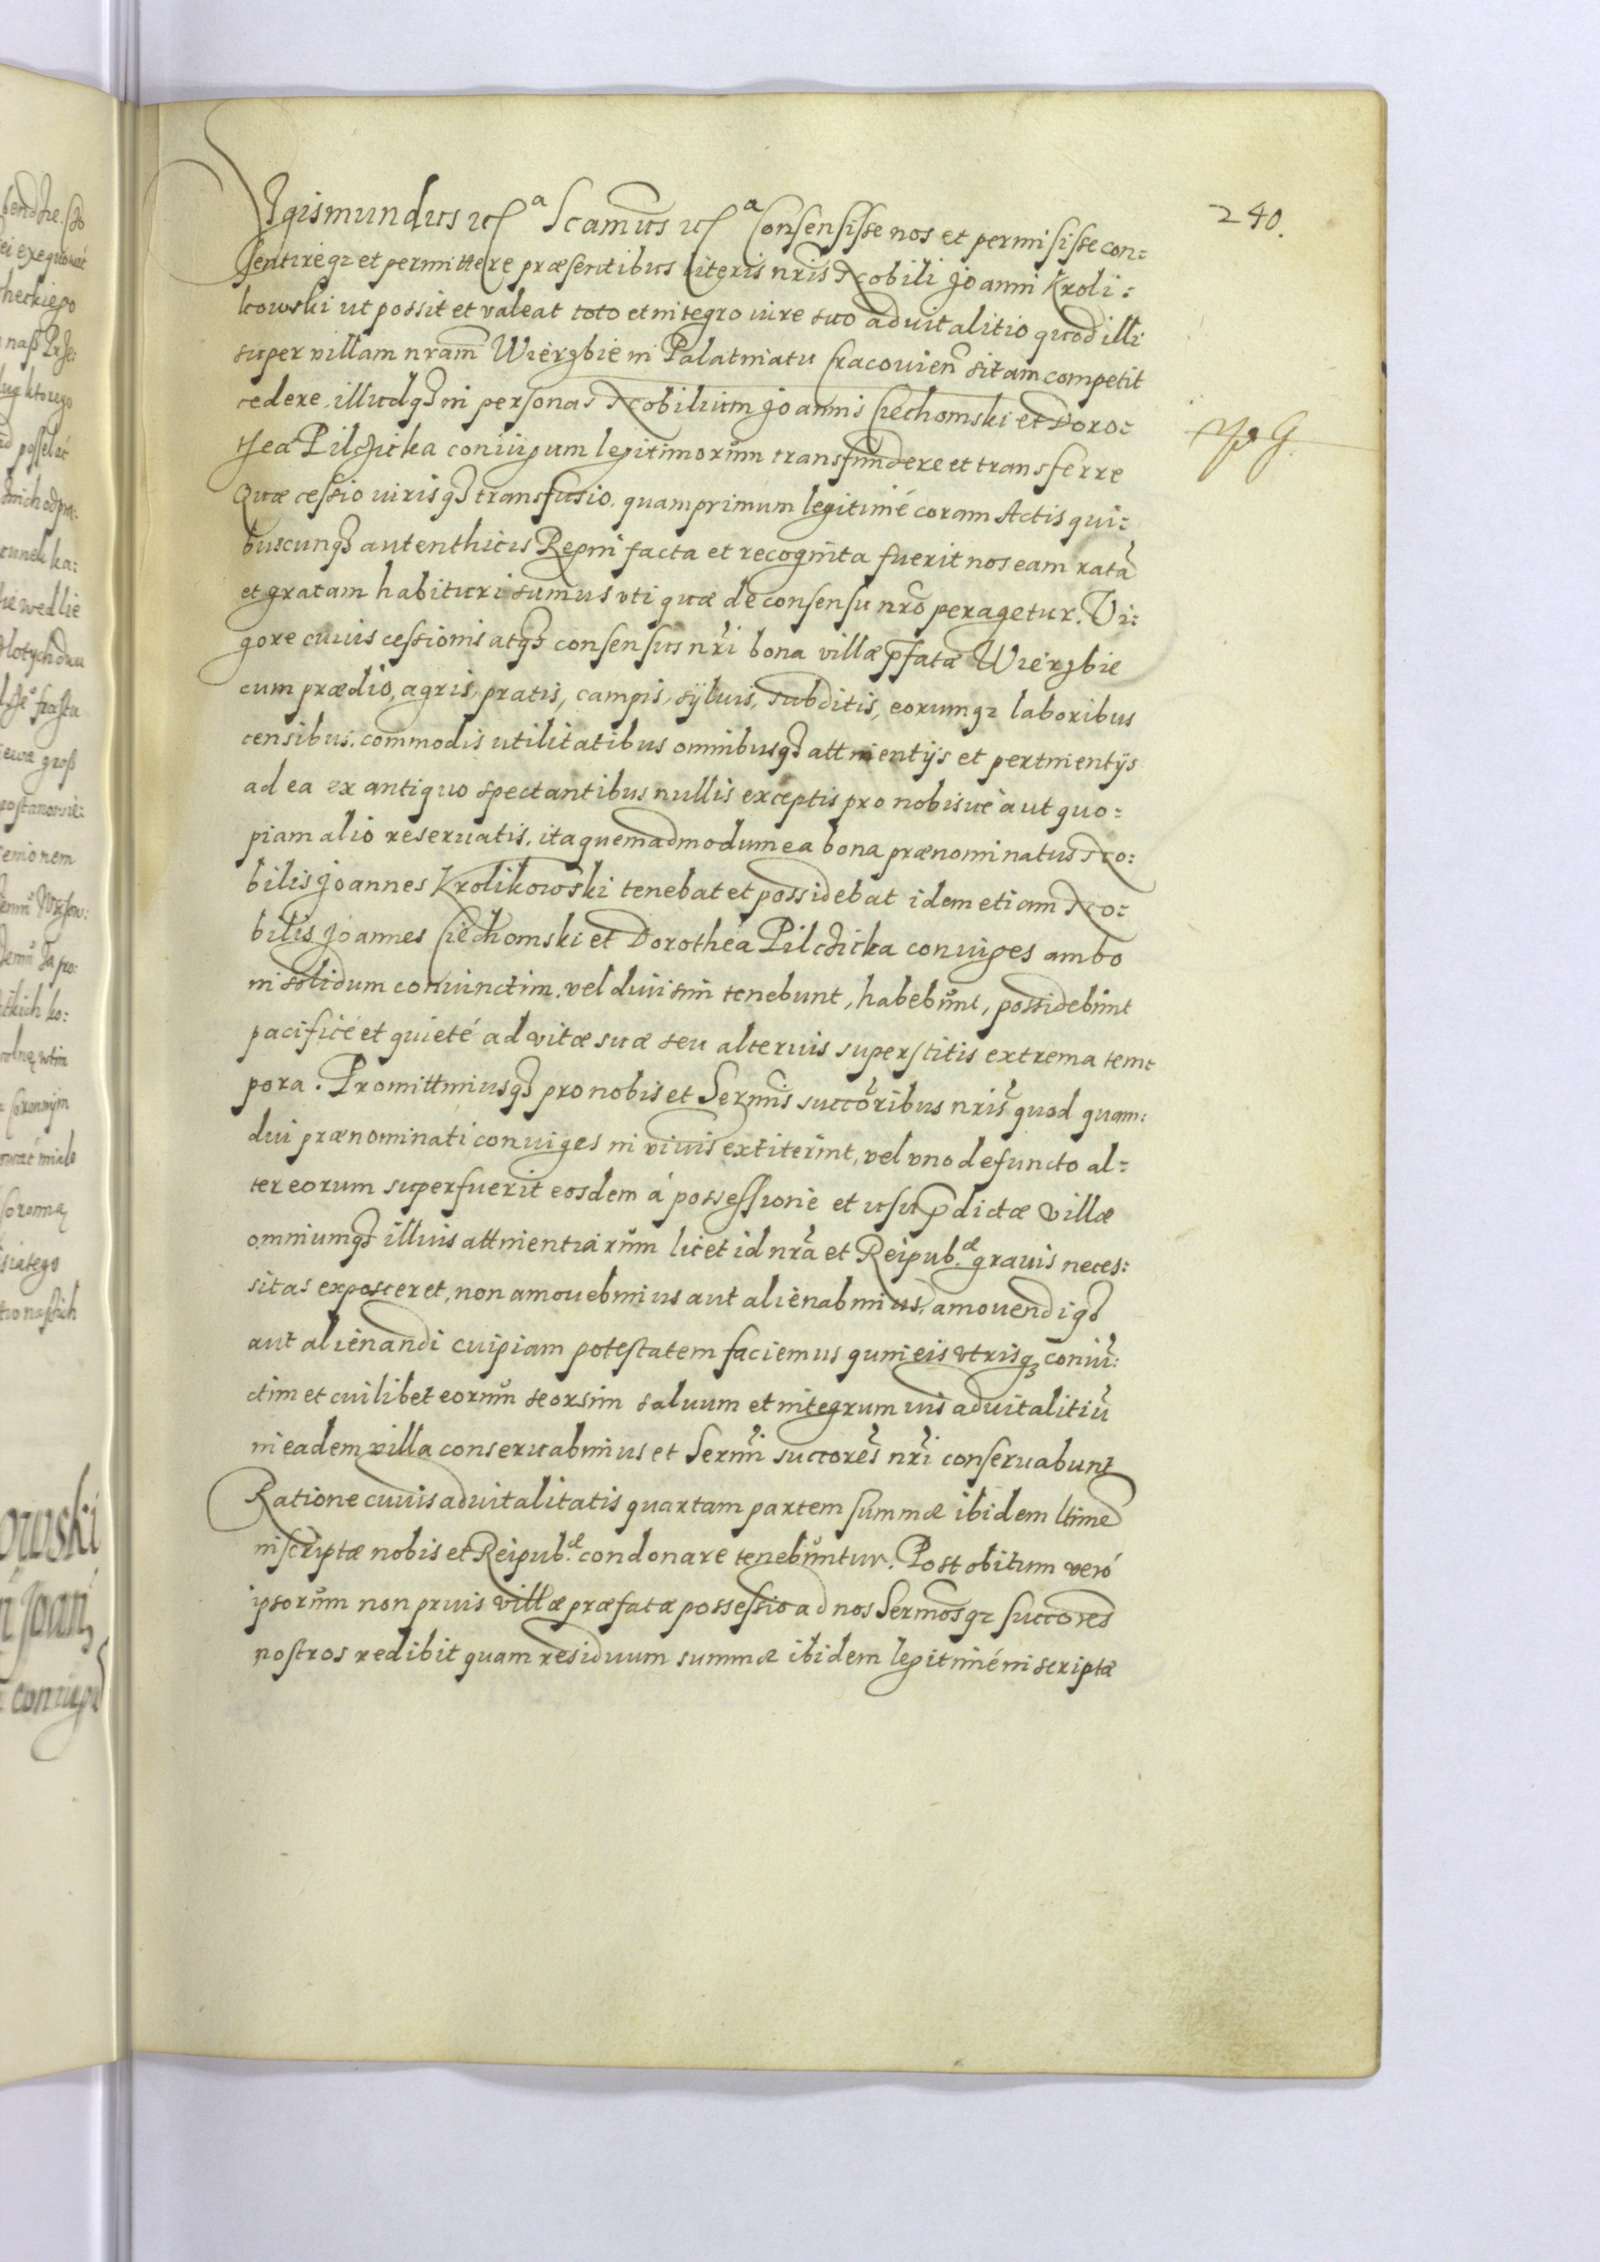 240.
Sigismundus etc.a Scamus etc.a Consensisse nos et permisisse con=
sentireq3 et permittere præsentibus literis nr̃is Nobili Joanni Kroli:
kowski ut possit et valeat toto et integro iure suo aduitalitio quod illi
super villam nram̃ Wierzbie in Palatinatu Cracouien̄ sitam competit
cedere, illudq3 in personas Nobilium Joannis Ciechomski et Doro=
thea Pilchicka coniugum legitimorum transfundere et transferre
Quæ cessio iurisq3 transfusio, quamprimum legitimé coram Actis qui:
buscunq3 autenthicis Regni facta et recognita fuerit nos eam ratā
et gratam habituri sumus vti quæ de consensu nrō peragetur. Vi:
gore cuius cessionis atq3 consensus nr̃i bona villæ p̄fatæ Wierzbie
cum prædio, agris, pratis, campis, syluis, subditis, eorumq3 laboribus
censibus, commodis utilitatibus omnibusq3 attinentijs et pertinentijs
ad ea ex antiquo spectantibus nullis exceptis pro nobisue aut quo:
piam alio reseruatis, ita quemadmodum ea bona prænominatus No:
bilis Joannes Krolikowski tenebat et possidebat idem etiam No:
bilis Joannes Ciechomski et Dorothea Pilchicka coniuges ambo
in solidum coniunctim, vel diuisim tenebunt, habebunt, possidebunt
pacificé et quieté ad vitæ suæ seu alterius superstitis extrema tem=
pora. Promittimusq3 pro nobis et Serm̃is succōribus nr̃is quod quam:
diu prænominati coniuges in viuis extiterint, vel vno defuncto al=
ter eorum superfuerit eosdem á possessione et usu p̄dictæ villæ
omniumq3 illius attinentiarum licet id nrā et Reipub.æ grauis neces:
sitas exposceret, non amouebimus aut alienabimus, amouendiq3
aut alienandi cuipiam potestatem faciemus quin eis vtrisq3 coniū:
ctim et cuilibet eorum seorsim saluum et integrum ius aduitalitiū
in eadem villa conseruabimus et Serm̃i succorēs nr̃i conseruabunt
Ratione cuius aduitalitatis quartam partem summæ ibidem ltime
inscriptæ nobis et Reipub.æ condonare tenebuntur. Post obitum veró
ipsorum non prius villæ præfatæ possessio ad nos Serm̃osq3 succores
nostros redibit quam residuum summæ ibidem legitimé inscriptæ